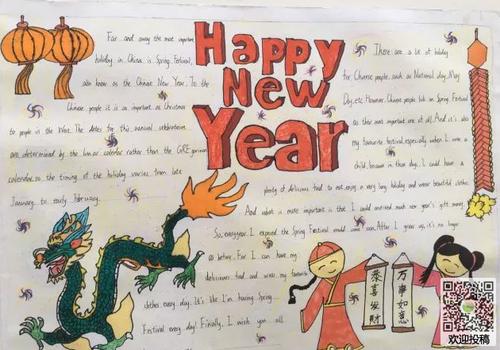 Happy
New
Year
Far and away the most important
holiday in China is Spring Festival,
also known as the Chinese New Year. To the
Chinese people it is as important as Christmas
to people in the West. The dates for this annual celebration
are determined by the lunar calendar rather than the GREgorian
calendar, so the timing of the holiday varies from late
January to early February.
There are a lot of holiday
for Chinese people, such as National day, May
Day, etc. However, Chinese people look on Spring Festival
as their most important one of all. And it's also
my favourite festival, especially when I were a
child. Because in those days, I could have a
plenty of delicious food to eat, enjoy a very long holiday and wear beautiful clothes.
And what is more important is that I could received much new year's gift money.
So, everyyear I expected the Spring Festival would come soon. After I grew up, it's no longer
so better. For I can have my
delicious food and wears my favourite
clothes every day. It's like I'm having Spring
Festival every day. Finally, I wish you all
恭喜發财
万事如意
欢迎投稿